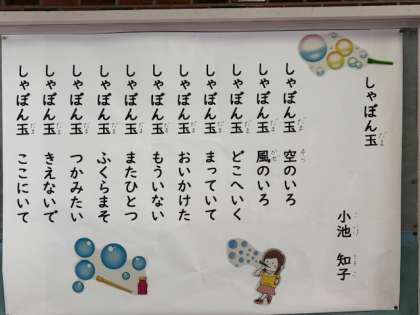 しゃぼん玉
小池 知子
しゃぼん玉 空のいろ
しゃぼん玉 風のいろ
しゃぼん玉 どこへいく
しゃぼん玉 まっていて
しゃぼん玉 おいかけた
しゃぼん玉 もういない
しゃぼん玉 またひとつ
しゃぼん玉 ふくらまそ
しゃぼん玉 つかみたい
しゃぼん玉 きえないで
しゃぼん玉 ここにいて